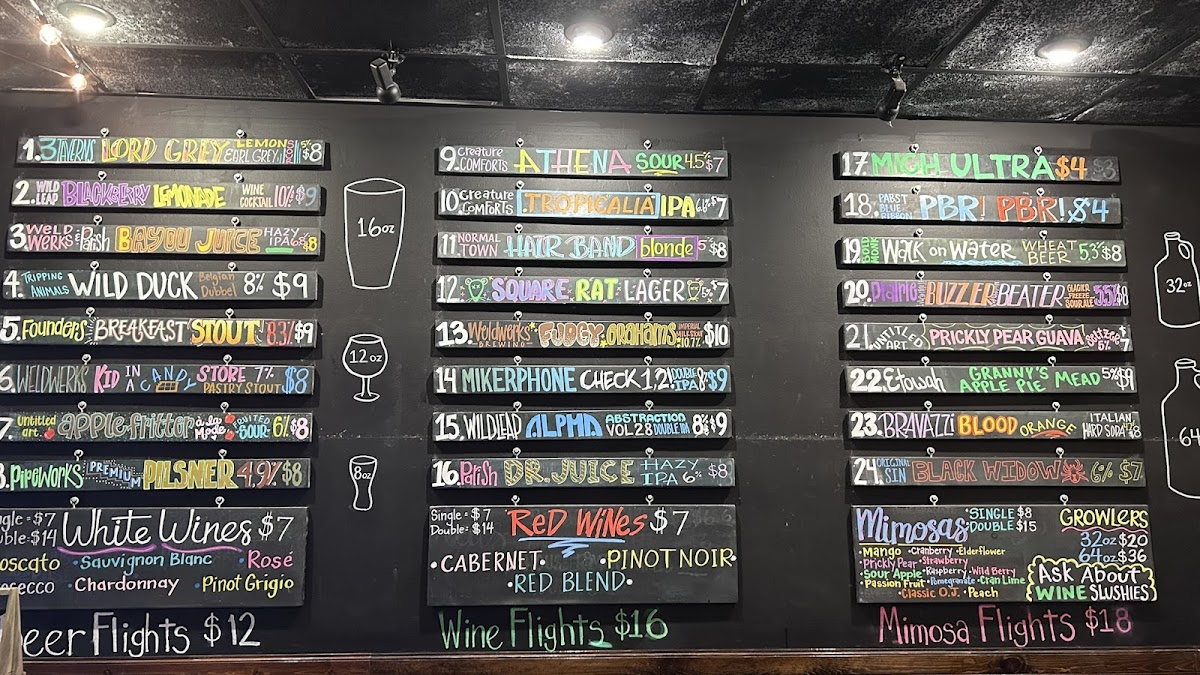 1. 3 TAVERNS LORD GREY LEMON EARL GREY SOUR 5% $8
2. WILD LEAP BLACKBERRY LEMONADE WINE COCKTAIL 10% $9
3. WELD WERKS & Parish BAYOU JUICE HAZY IPA 6% $8
4. TRIPPING ANIMALS WILD DUCK Belgian Dubbel 8% $9
5. Founders BREAKFAST STOUT 8.3% $9
6. WELDWERKS KID IN A CANDY STORE 7% PASTRY STOUT $8
7. untitled art. apple frittor à la Mode FRUITED SOUR 6% $8
8. PIPEWORKS PREMIUM PILSNER 4.9% $8
Single = $7
Double: $14
White Wines $7
Moscato • Sauvignon Blanc • Rosé
Prosecco • Chardonnay • Pinot Grigio
Beer Flights $12
16oz
12oz
8oz
9. Creature COMFORTS ATHENA SOUR 4.5% $7
10. Creature COMFORTS TROPICALIA IPA 6.6% $7
11. NORMAL TOWN HAIR BAND blonde 5% $8
12. SQUARE RAT LAGER 5% $7
13. Weldwerks BREWING FUDGY GRAHAMS IMPERIAL MILK STOUT 10.7% $10
14 MIKERPHONE CHECK 1, 2! DOUBLE IPA 8% $9
15. WILD LEAP ALPHA ABSTRACTION VOL 28 DOUBLE IPA 8% $9
16. Parish DR. JUICE HAZY IPA 6% $8
Single = $7
Double = $14
RED WINES $7
• CABERNET • • PINOT NOIR •
• RED BLEND •
Wine Flights $16
17. MICH ULTRA $4
18. PABST BLUE RIBBON PBR! PBR! $4
19. WALK on WATER WHEAT BEER 5.3% $8
20. Prairie BUZZER BEATER GLACIER FREEZE SOUR ALE 5.5% $8
21. UNTITLED ART PRICKLY PEAR GUAVA Seltzer 5% $7
22. Etowah GRANNY'S APPLE PIE MEAD 5% $9
23. BRAVAZZI BLOOD ORANGE ITALIAN HARD SODA 4.2% $8
24. ORIGINAL SIN BLACK WIDOW 6% $7
Mimosas • SINGLE $8
• DOUBLE $15
• Mango • Cranberry • Elderflower
• Prickly Pear • Strawberry
• Sour Apple • Raspberry • Wild Berry
• Passion Fruit • Pomegranate • Cran Lime
• Classic O.J. • Peach
GROWLERS
32oz $20
64oz $36
ASK ABOUT
WINE SLUSHIES
Mimosa Flights $18
32oz
64